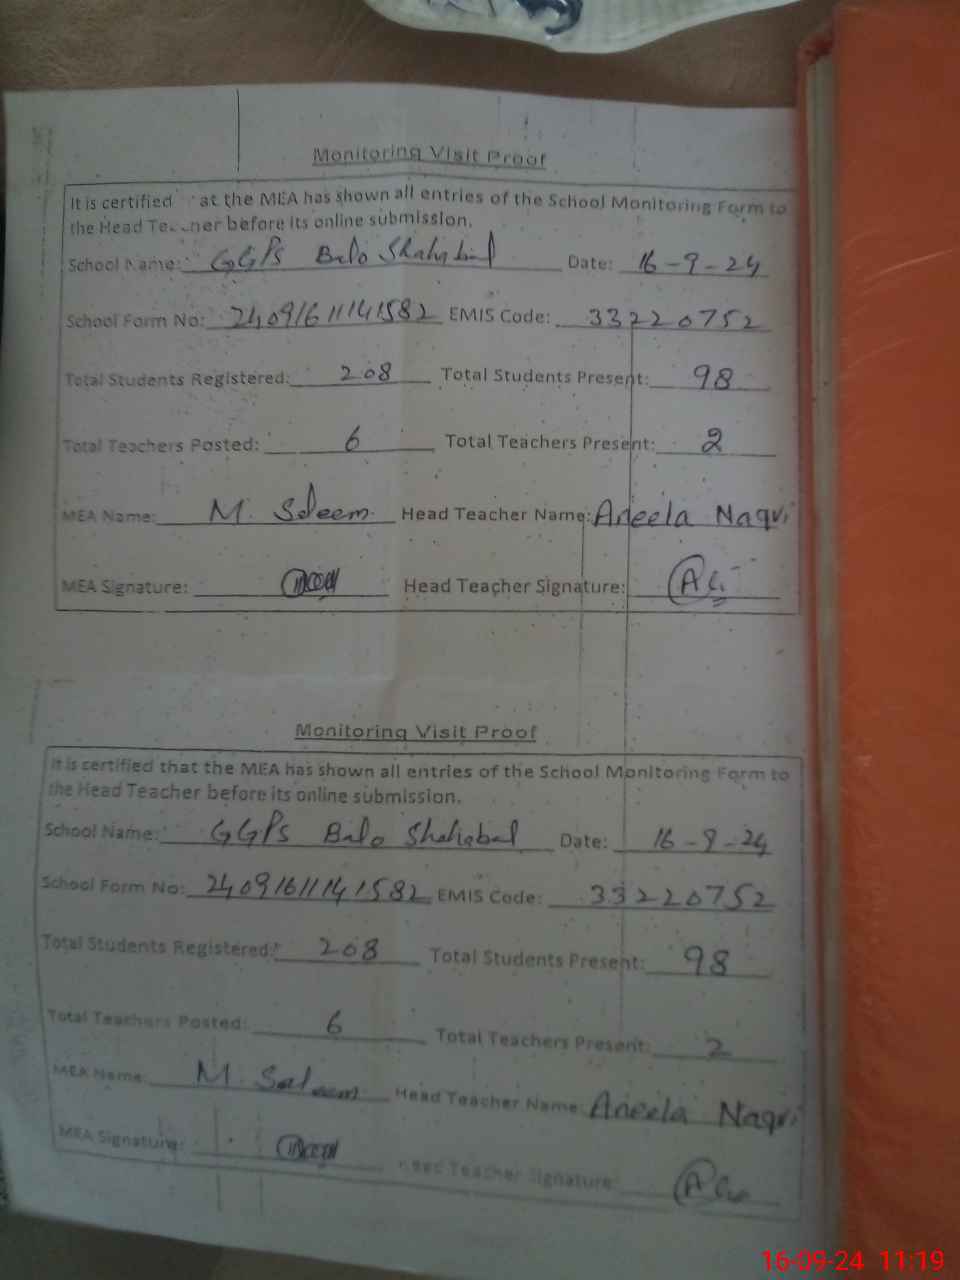 Monitoring Visit Proof
It is certified at the MEA has shown all entries of the School Monitoring Form to
the Head Teacher before its online submission.
School Name: GGPS Balo Shahabal Date: 16-9-24
School Form No: 24091611141582 EMIS Code: 33220752
Total Students Registered: 208 Total Students Present: 98
Total Teachers Posted: 6 Total Teachers Present: 2
MEA Name: M. Saleem Head Teacher Name: Aneela Naqvi
MEA Signature: Head Teacher Signature:
Monitoring Visit Proof
It is certified that the MEA has shown all entries of the School Monitoring Form to
the Head Teacher before its online submission.
School Name: GGPS Balo Date: 16-9-24
School Form No: 24091611141582 EMIS Code: 33220752
Total Students Registered: 208 Total Students Present: 98
Total Teachers Posted: 6 Total Teachers Present: 2
MEA Name: M. Saleem Head Teacher Name: Aneela Naqvi
MEA Signature: Head Teacher Signature:
16-09-24 11:19